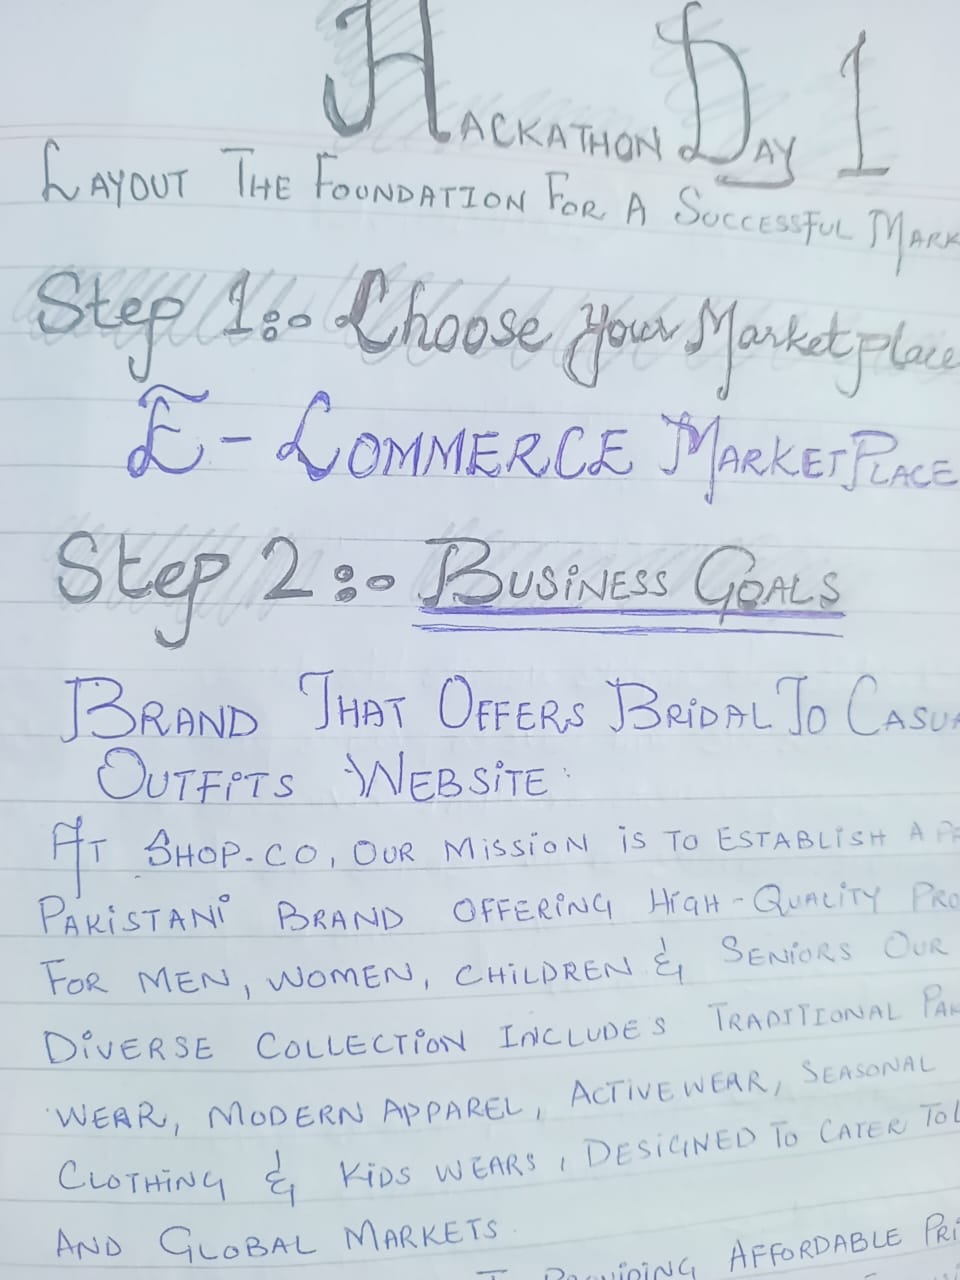 HACKATHON DAY 1
LAYOUT THE FOUNDATION FOR A SUCCESSFUL MARK
Step 1:- Choose Your Marketplace
E-COMMERCE MARKETPLACE
Step 2:- BUSINESS GOALS
BRAND THAT OFFERS BRIDAL TO CASUA
OUTFITS WEBSITE:
AT SHOP.CO, OUR MISSION IS TO ESTABLISH A
PAKISTANI BRAND OFFERING HIGH-QUALITY PRO
FOR MEN, WOMEN, CHILDREN & SENIORS OUR
DIVERSE COLLECTION INCLUDES TRADITIONAL PAK
WEAR, MODERN APPAREL, ACTIVEWEAR, SEASONAL
CLOTHING & KIDS WEARS, DESIGNED TO CATER TO
AND GLOBAL MARKETS.
PROVIDING AFFORDABLE PRI